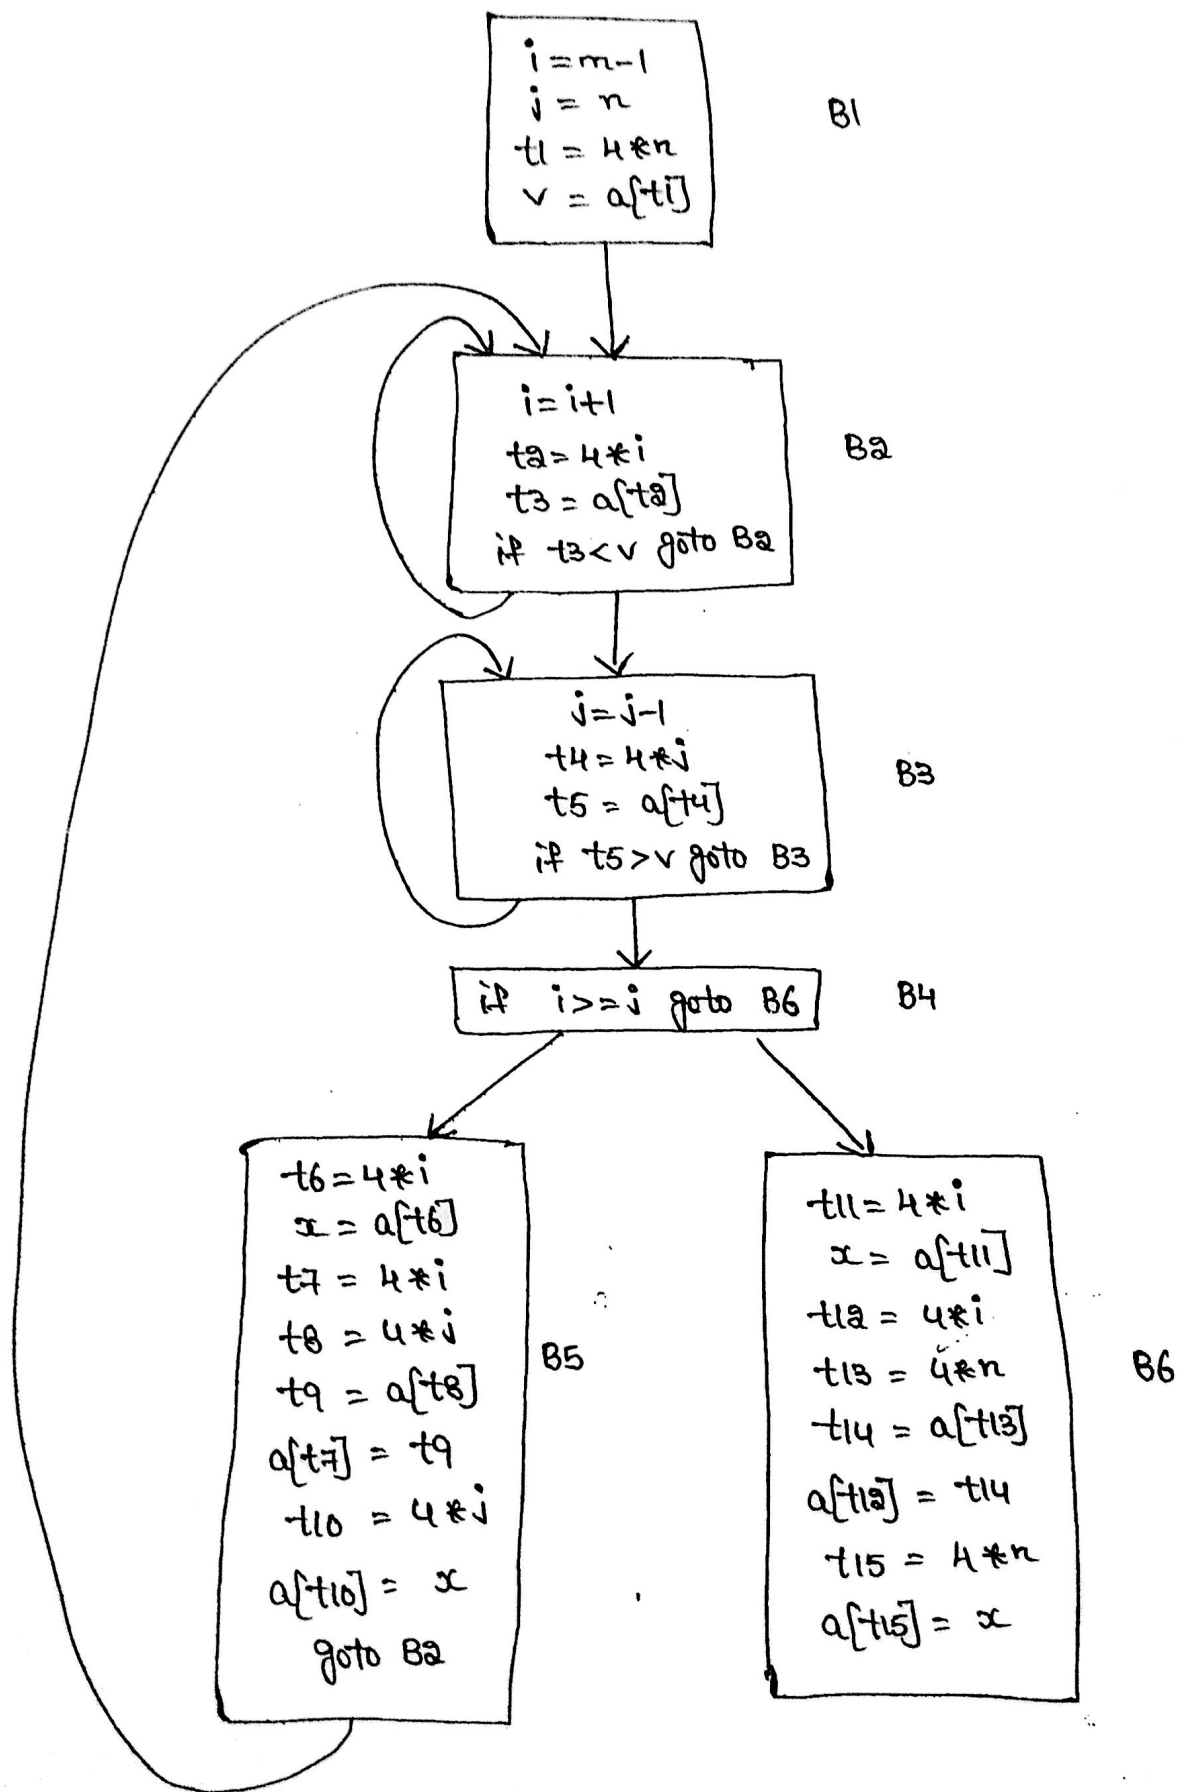 i = m-1
j = n
t1 = 4*n
v = a[t1]
B1
i = i+1
t2 = 4*i
t3 = a[t2]
if t3<v goto B2
B2
j = j-1
t4 = 4*j
t5 = a[t4]
if t5>v goto B3
B3
if i>=j goto B6
B4
t6 = 4*i
x = a[t6]
t7 = 4*i
t8 = 4*j
t9 = a[t8]
a[t7] = t9
t10 = 4*j
a[t10] = x
goto B2
B5
t11 = 4*i
x = a[t11]
t12 = 4*i
t13 = 4*n
t14 = a[t13]
a[t12] = t14
t15 = 4*n
a[t15] = x
B6